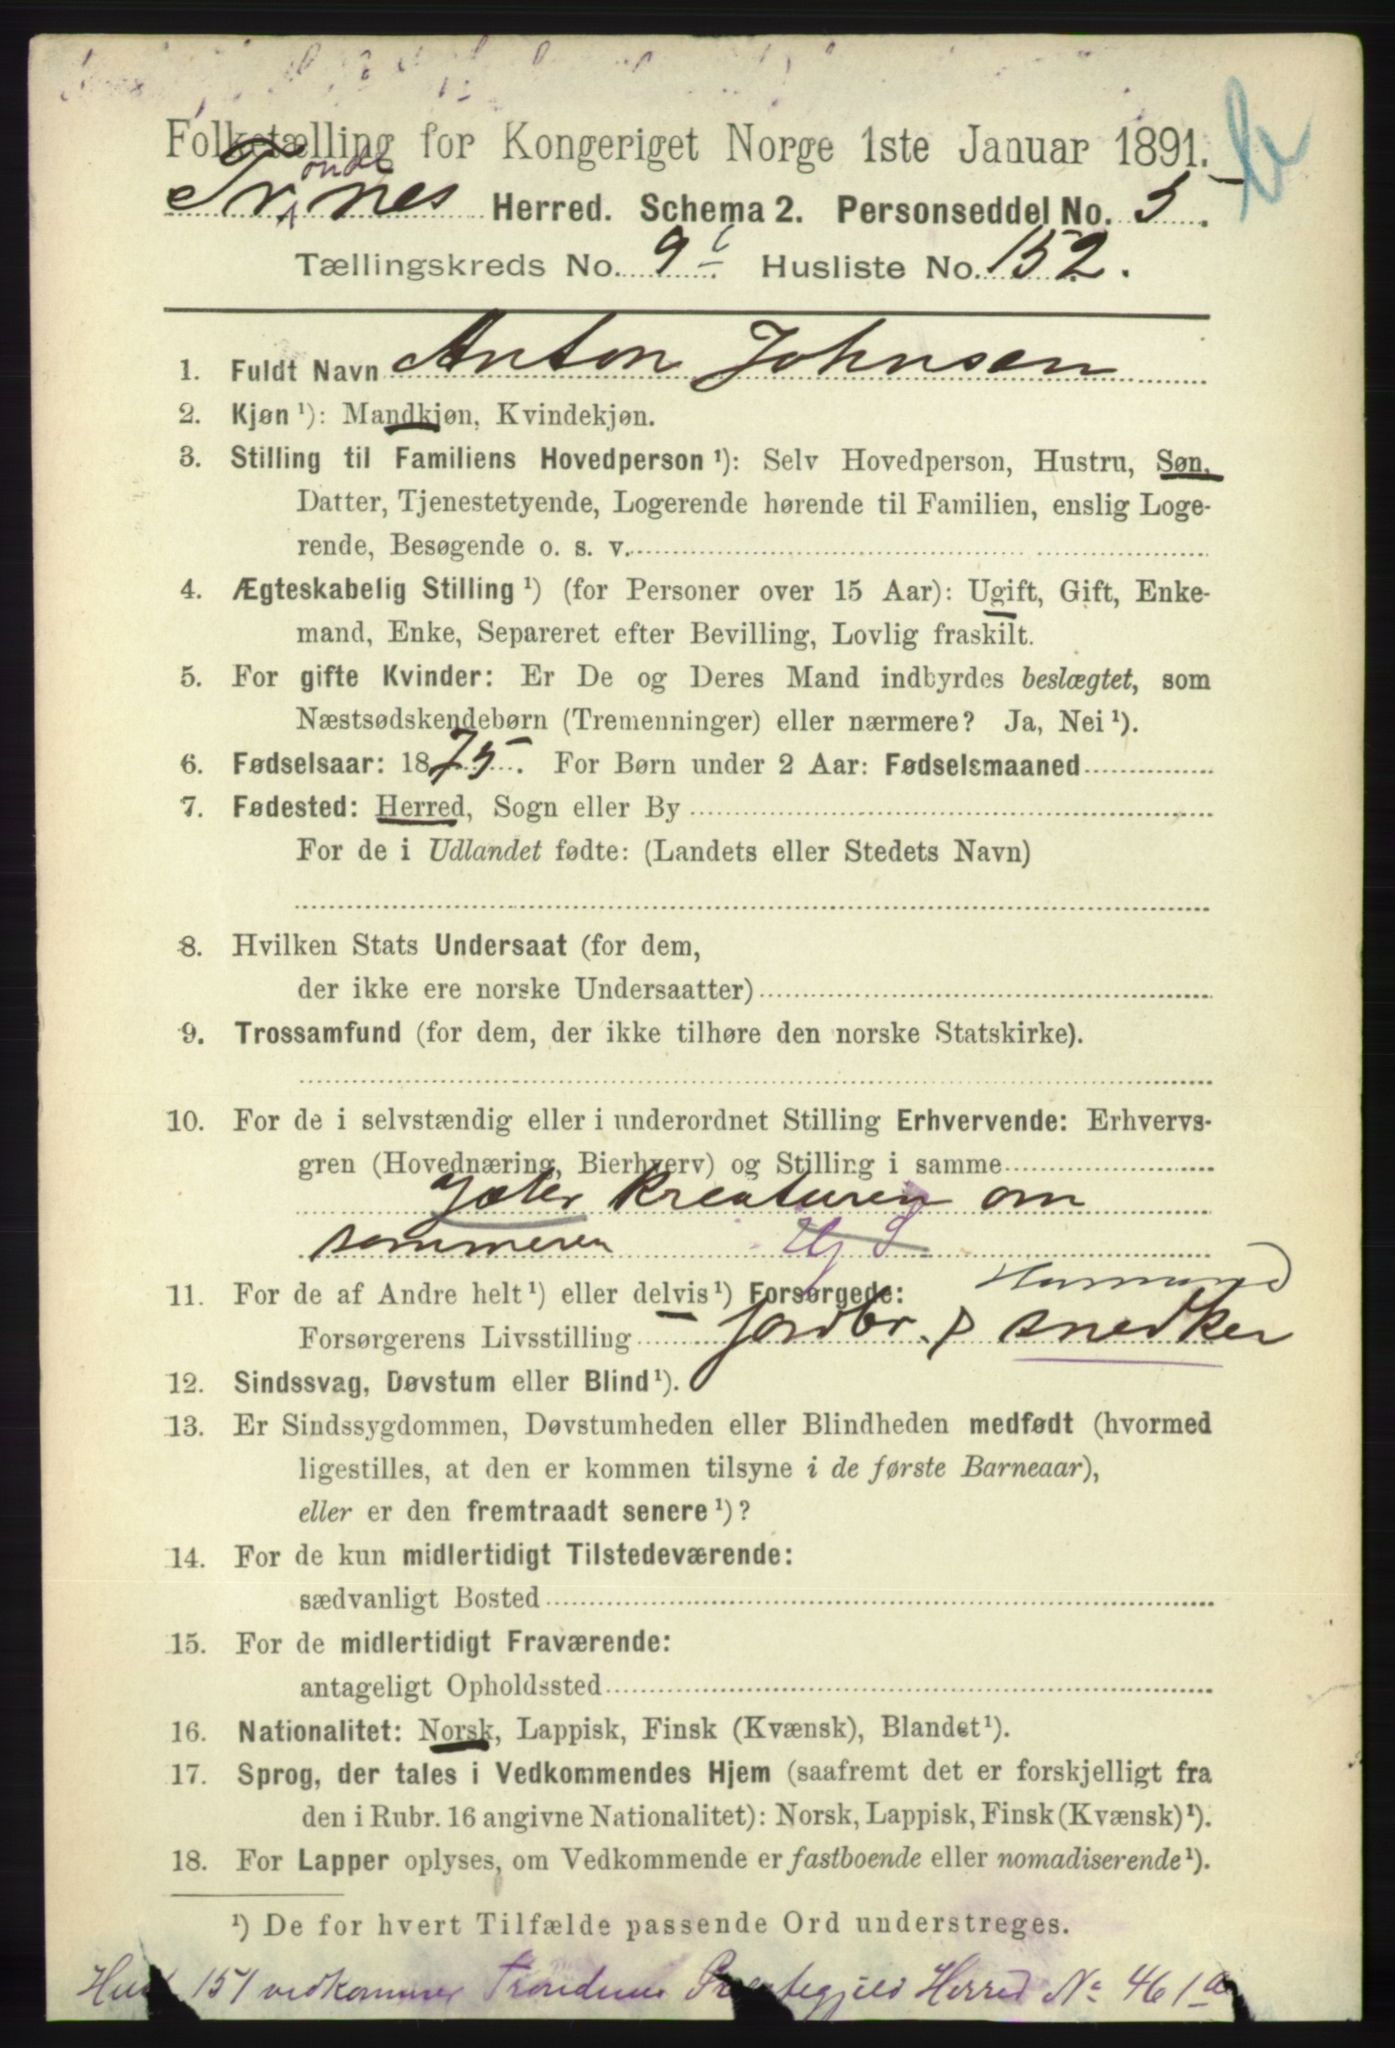 Folketælling for Kongeriget Norge 1ste Januar 1891.
Tronde nes Herred. Schema 2. Personseddel No. 5.
Tællingskreds No. 9 Husliste No. 152.
1. Fuldt Navn Anton Johnsen
2. Kjøn ¹): Mandkjøn, Kvindekjøn.
3. Stilling til Familiens Hovedperson ¹): Selv Hovedperson, Hustru, Søn,
Datter, Tjenestetyende, Logerende hørende til Familien, enslig Loge-
rende, Besøgende o. s. v.
4. Ægteskabelig Stilling ¹) (for Personer over 15 Aar): Ugift, Gift, Enke-
mand, Enke, Separeret efter Bevilling, Lovlig fraskilt.
5. For gifte Kvinder: Er De og Deres Mand indbyrdes beslægtet, som
Næstsødskendebørn (Tremenninger) eller nærmere? Ja, Nei ¹).
6. Fødselsaar: 1875. For Børn under 2 Aar: Fødselsmaaned
7. Fødested: Herred, Sogn eller By
For de i Udlandet fødte: (Landets eller Stedets Navn)
8. Hvilken Stats Undersaat (for dem,
der ikke ere norske Undersaatter)
9. Trossamfund (for dem, der ikke tilhøre den norske Statskirke).
10. For de i selvstændig eller i underordnet Stilling Erhvervende: Erhvervs-
gren (Hovednæring, Bierhverv) og Stilling i samme
Jæter kreaturen om
sommeren
11. For de af Andre helt ¹) eller delvis ¹) Forsørgede: Husmand
Forsørgerens Livsstilling - Jordbr. & snedker
12. Sindssvag, Døvstum eller Blind ¹).
13. Er Sindssygdommen, Døvstumheden eller Blindheden medfødt (hvormed
ligestilles, at den er kommen tilsyne i de første Barneaar),
eller er den fremtraadt senere ¹)?
14. For de kun midlertidigt Tilstedeværende:
sædvanligt Bosted
15. For de midlertidigt Fraværende:
antageligt Opholdssted
16. Nationalitet: Norsk, Lappisk, Finsk (Kvænsk), Blandet ¹).
17. Sprog, der tales i Vedkommendes Hjem (saafremt det er forskjelligt fra
den i Rubr. 16 angivne Nationalitet): Norsk, Lappisk, Finsk (Kvænsk) ¹).
18. For Lapper oplyses, om Vedkommende er fastboende eller nomadiserende ¹).
¹) De for hvert Tilfælde passende Ord understreges.
151 vedkommer Trondenes Præstegjeld Herred No 461a